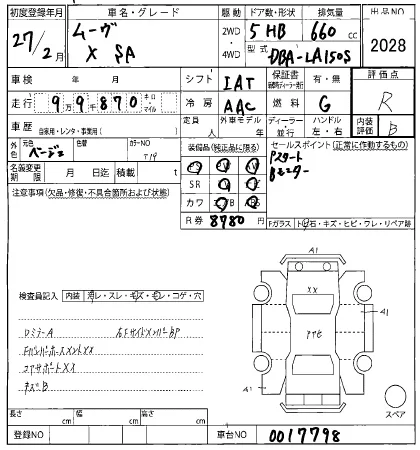 初度登録年月 車名・グレード 駆動 ドア数・形状 排気量 出品NO
27/2月 ムーヴ X SA 2WD・4WD 5 HB 660 cc 2028
型式 DBA-LA150S
車検 年 月 シフト IAT 保証書 有・無 評価点
走行 99千870 キロ・マイル 冷房 AAC 燃料 G R
車歴 自家用・レンタ・事業用( ) 定員 人 外車モデル 年 ディーラー・並行 ハンドル 左・右 内装評価 B
外色 元色 ベージュ 色替 カラーNO T19 装備品(純正品に限る) セールスポイント(正常に作動するもの)
Pスタート
Bモニター
名義変更期限 月 日迄 積載 t
SR
注意事項(欠品・修復・不具合箇所および状態) カワ
R券 8780 Fガラス トビ石・キズ・ヒビ・ワレ・リペア跡
A1
検査員記入 内装 コゲ・穴
XX
A1
ロミラーA 右Fサイドメンバー BP
FバンパーホースメントXX
コアサポートXX
キズB
A1
スペア
長さ cm 幅 cm 高さ cm
登録NO 車台NO 0017798